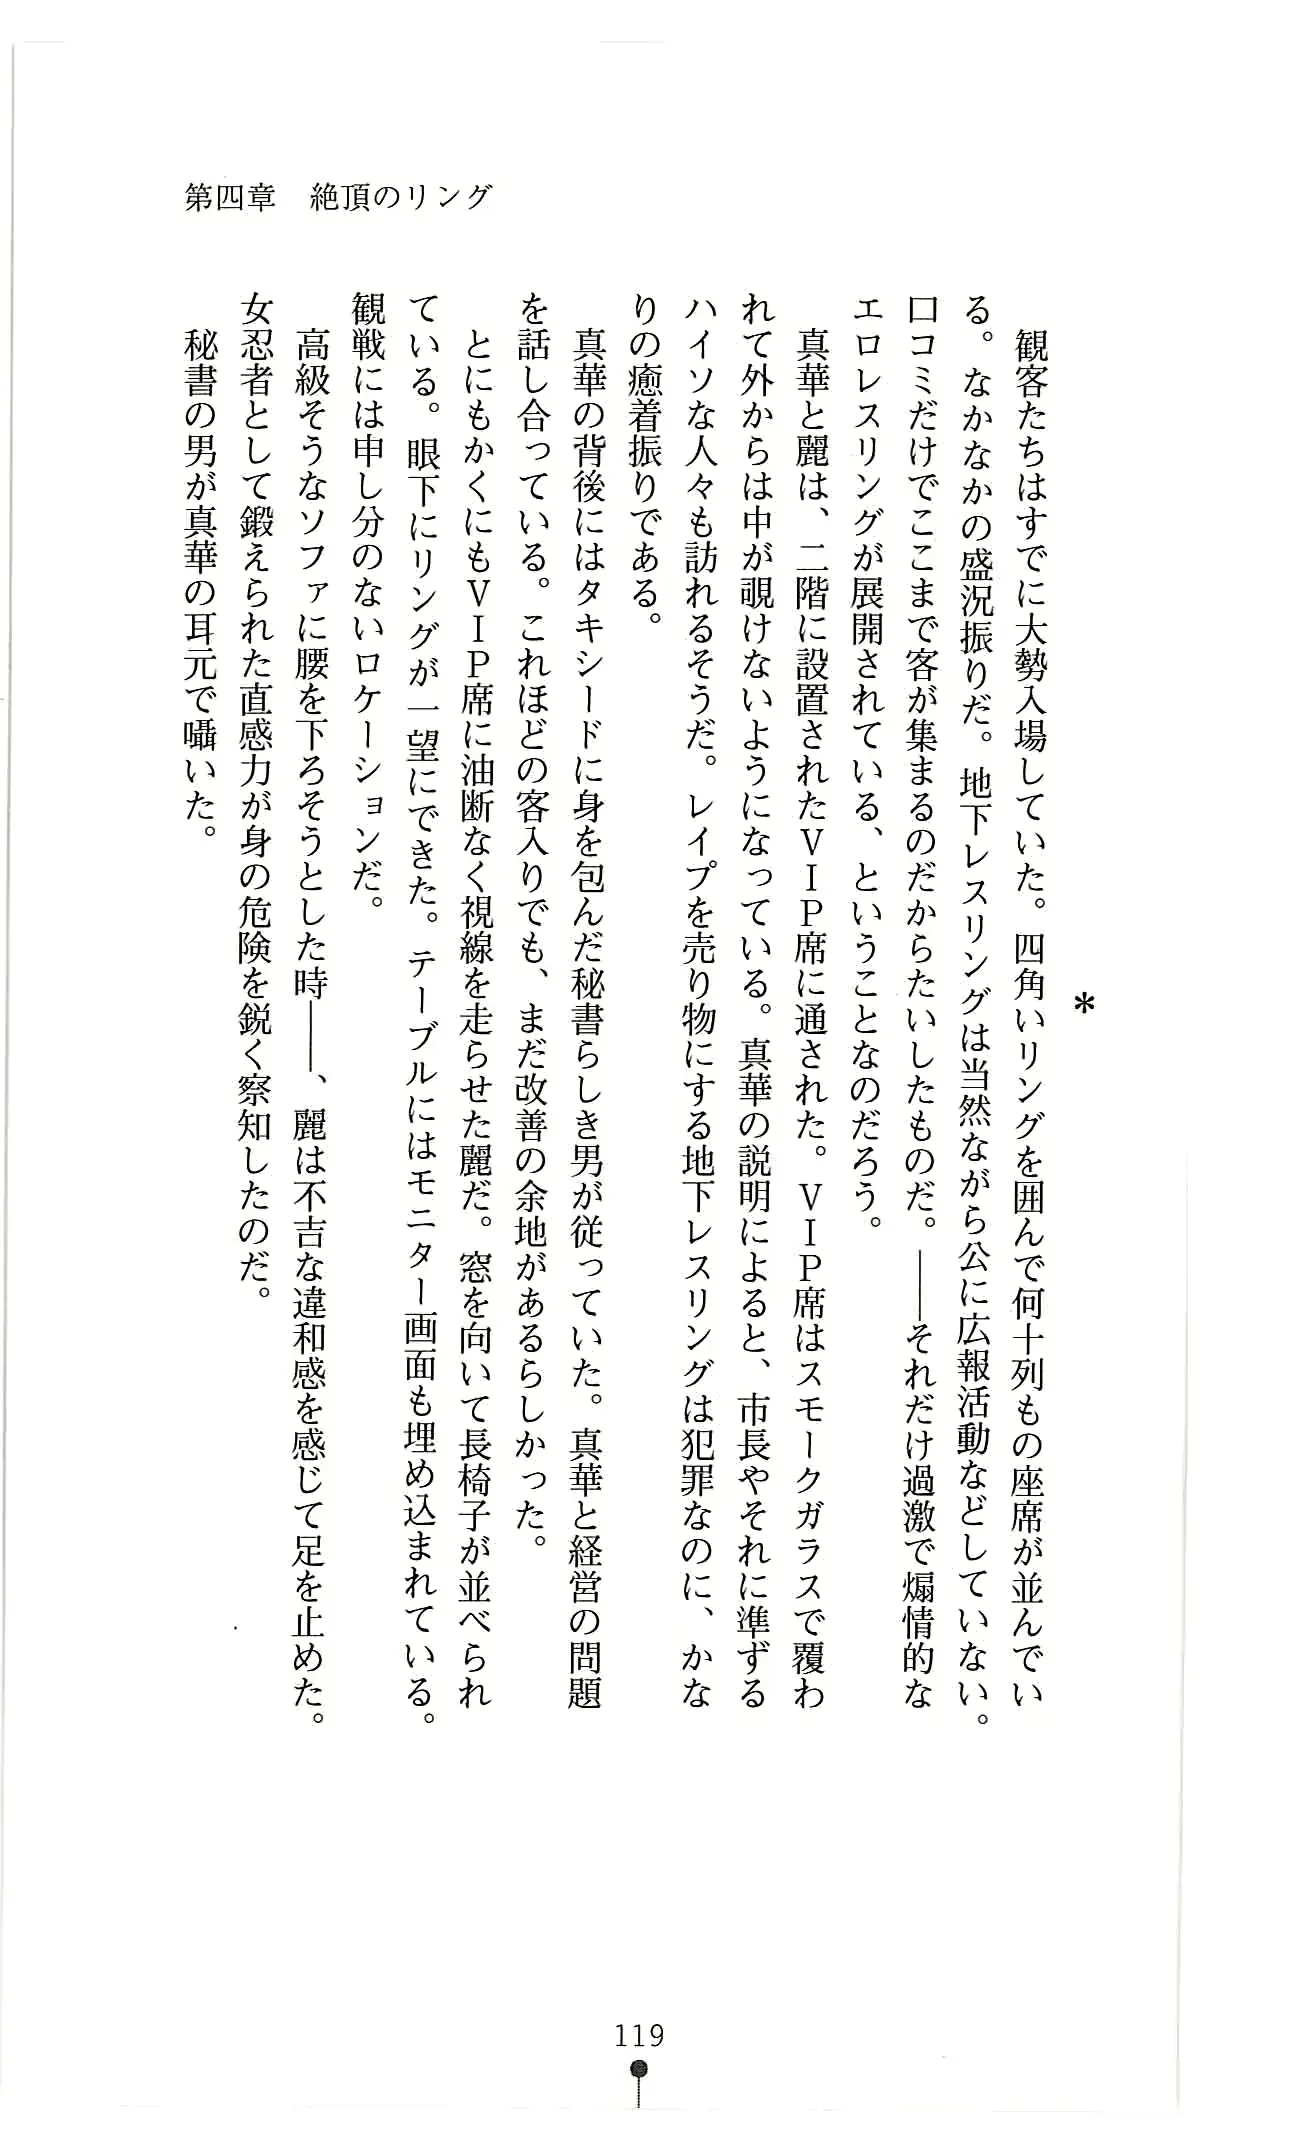 第四章　絶頂のリング
＊
　観客たちはすでに大勢入場していた。四角いリングを囲んで何十列もの座席が並んでい
る。なかなかの盛況振りだ。地下レスリングは当然ながら公に広報活動などしていない。
口コミだけでここまで客が集まるのだからたいしたものだ。――それだけ過激で煽情的な
エロレスリングが展開されている、ということなのだろう。
　真華と麗は、二階に設置されたＶＩＰ席に通された。ＶＩＰ席はスモークガラスで覆わ
れて外からは中が覗けないようになっている。真華の説明によると、市長やそれに準ずる
ハイソな人々も訪れるそうだ。レイプを売り物にする地下レスリングは犯罪なのに、かな
りの癒着振りである。
　真華の背後にはタキシードに身を包んだ秘書らしき男が従っていた。真華と経営の問題
を話し合っている。これほどの客入りでも、まだ改善の余地があるらしかった。
　とにもかくにもＶＩＰ席に油断なく視線を走らせた麗だ。窓を向いて長椅子が並べられ
ている。眼下にリングが一望にできた。テーブルにはモニター画面も埋め込まれている。
観戦には申し分のないロケーションだ。
　高級そうなソファに腰を下ろそうとした時――、麗は不吉な違和感を感じて足を止めた。
女忍者として鍛えられた直感力が身の危険を鋭く察知したのだ。
　秘書の男が真華の耳元で囁いた。
119